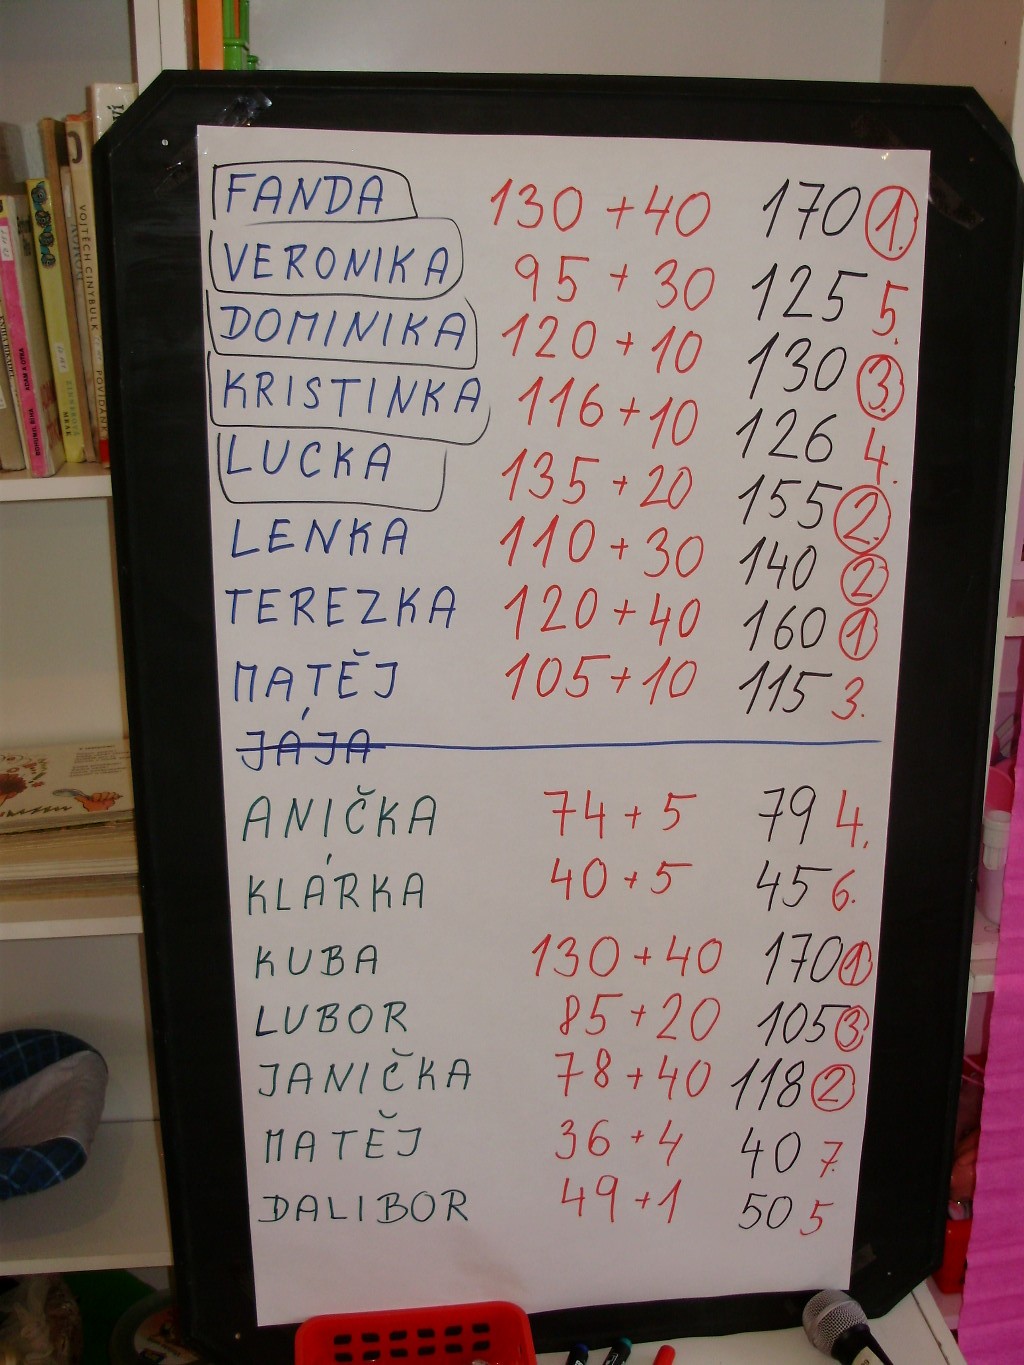 FANDA 130 + 40 170 1.
VERONIKA 95 + 30 125 5.
DOMINIKA 120 + 10 130 3.
KRISTINKA 116 + 10 126 4.
LUCKA 135 + 20 155 2.
LENKA 110 + 30 140 2
TEREZKA 120 + 40 160 1
MATĚJ 105 + 10 115 3.
JÁJA
ANIČKA 74 + 5 79 4.
KLÁRKA 40 + 5 45 6.
KUBA 130 + 40 170 1
LUBOR 85 + 20 105 3
JANIČKA 78 + 40 118 2
MATĚJ 36 + 4 40 7.
DALIBOR 49 + 1 50 5
VOJTĚCH CINYBULK
POVÍDÁN
BOHUMIL ŘÍHA